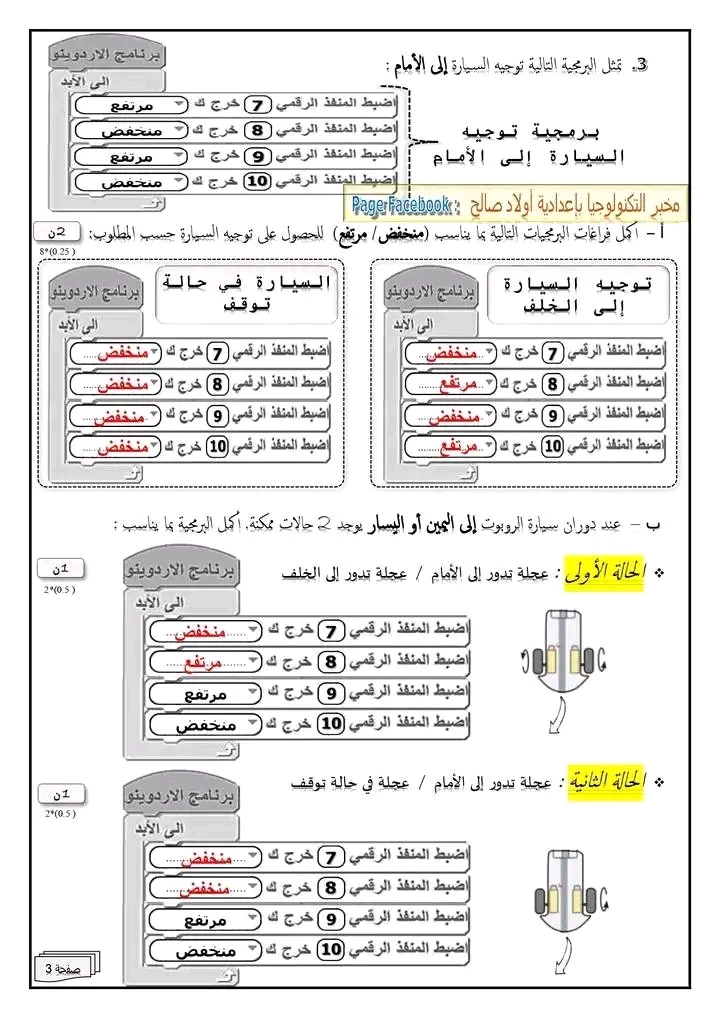 3. تمثل البرمجية التالية توجيه السيارة إلى الأمام :
برنامج الاردوينو
الى الأبد
اضبط المنفذ الرقمي 7 خرج ك مرتفع
اضبط المنفذ الرقمي 8 خرج ك منخفض
اضبط المنفذ الرقمي 9 خرج ك مرتفع
اضبط المنفذ الرقمي 10 خرج ك منخفض
برمجية توجيه
السيارة إلى الأمام
مخبر التكنولوجيا بإعدادية أولاد صالح : Page Facebook
أ – اكمل فراغات البرمجيات التالية بما يناسب (منخفض/ مرتفع) للحصول على توجيه السيارة حسب المطلوب:
2ن
8*(0.25)
توجيه السيارة
إلى الخلف
برنامج الاردوينو
الى الأبد
اضبط المنفذ الرقمي 7 خرج ك منخفض
اضبط المنفذ الرقمي 8 خرج ك مرتفع
اضبط المنفذ الرقمي 9 خرج ك منخفض
اضبط المنفذ الرقمي 10 خرج ك مرتفع
السيارة في حالة
توقف
برنامج الاردوينو
الى الأبد
اضبط المنفذ الرقمي 7 خرج ك منخفض
اضبط المنفذ الرقمي 8 خرج ك منخفض
اضبط المنفذ الرقمي 9 خرج ك منخفض
اضبط المنفذ الرقمي 10 خرج ك منخفض
ب – عند دوران سيارة الروبوت إلى اليمين أو اليسار يوجد 2 حالات ممكنة. أكمل البرمجية بما يناسب :
❖ الحالة الأولى : عجلة تدور إلى الأمام / عجلة تدور إلى الخلف
1ن
2*(0.5)
برنامج الاردوينو
الى الأبد
اضبط المنفذ الرقمي 7 خرج ك منخفض
اضبط المنفذ الرقمي 8 خرج ك مرتفع
اضبط المنفذ الرقمي 9 خرج ك مرتفع
اضبط المنفذ الرقمي 10 خرج ك منخفض
❖ الحالة الثانية : عجلة تدور إلى الأمام / عجلة في حالة توقف
1ن
2*(0.5)
برنامج الاردوينو
الى الأبد
اضبط المنفذ الرقمي 7 خرج ك منخفض
اضبط المنفذ الرقمي 8 خرج ك منخفض
اضبط المنفذ الرقمي 9 خرج ك مرتفع
اضبط المنفذ الرقمي 10 خرج ك منخفض
صفحة 3